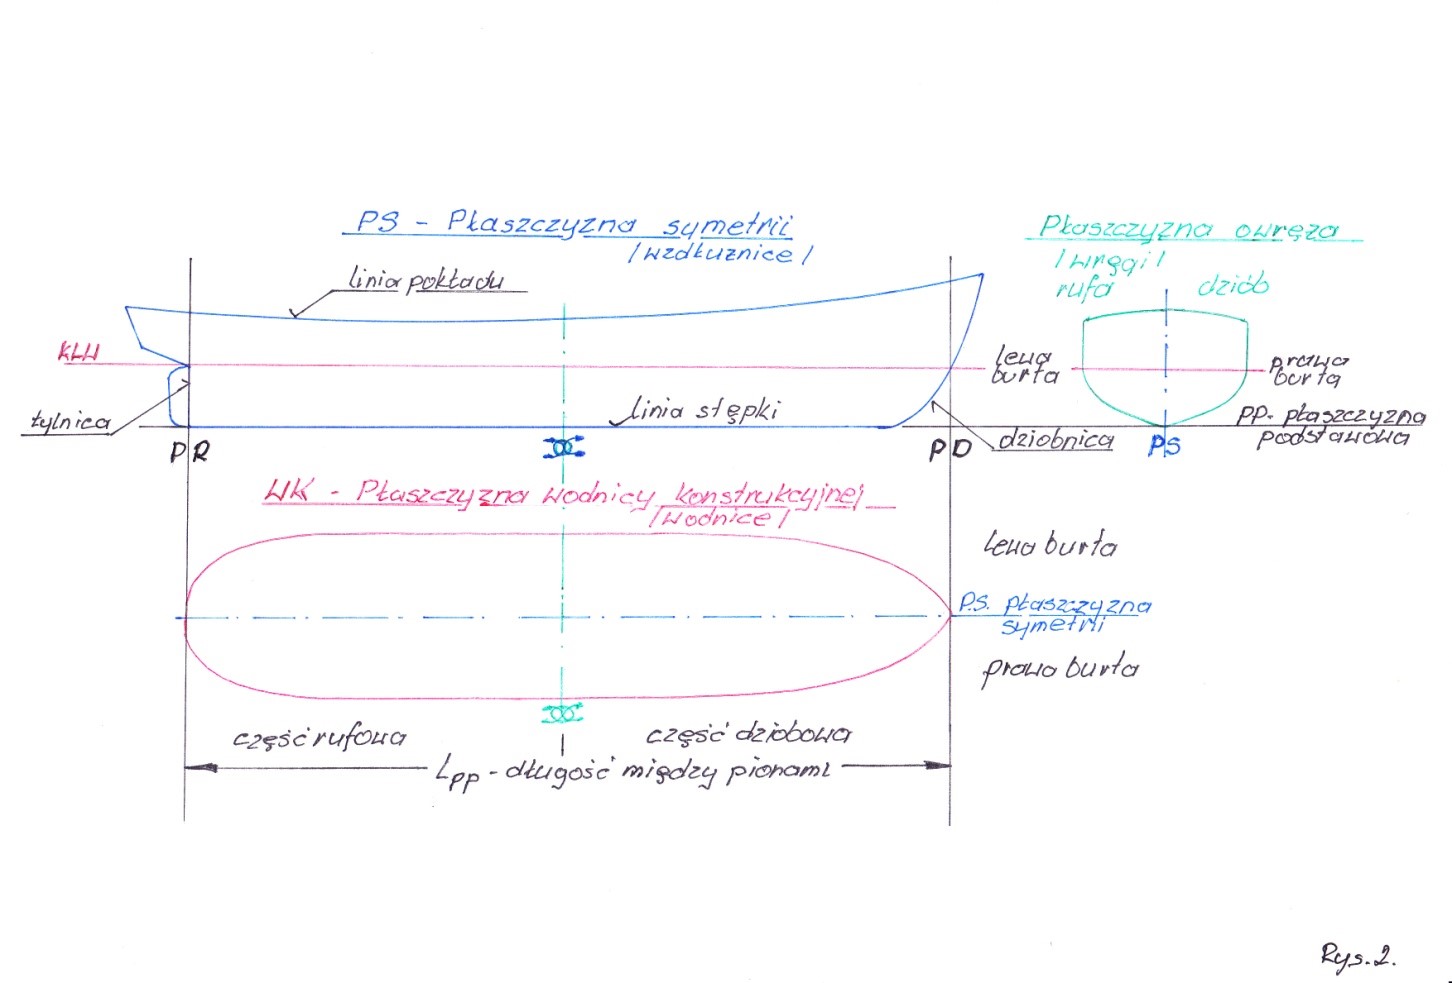 PS - Płaszczyzna symetrii
/wzdłużnice/
Płaszczyzna owręża
/wręgi/
rufa dziób
linia pokładu
KLW
lewa burta
prawa burta
tylnica
linia stępki
dziobnica
PP- płaszczyzna podstawowa
PR
PD
PS
WK - Płaszczyzna wodnicy konstrukcyjnej
/wodnice/
lewa burta
P.S. płaszczyzna symetrii
prawa burta
część rufowa
część dziobowa
Lpp - długość między pionami
Rys. 2.